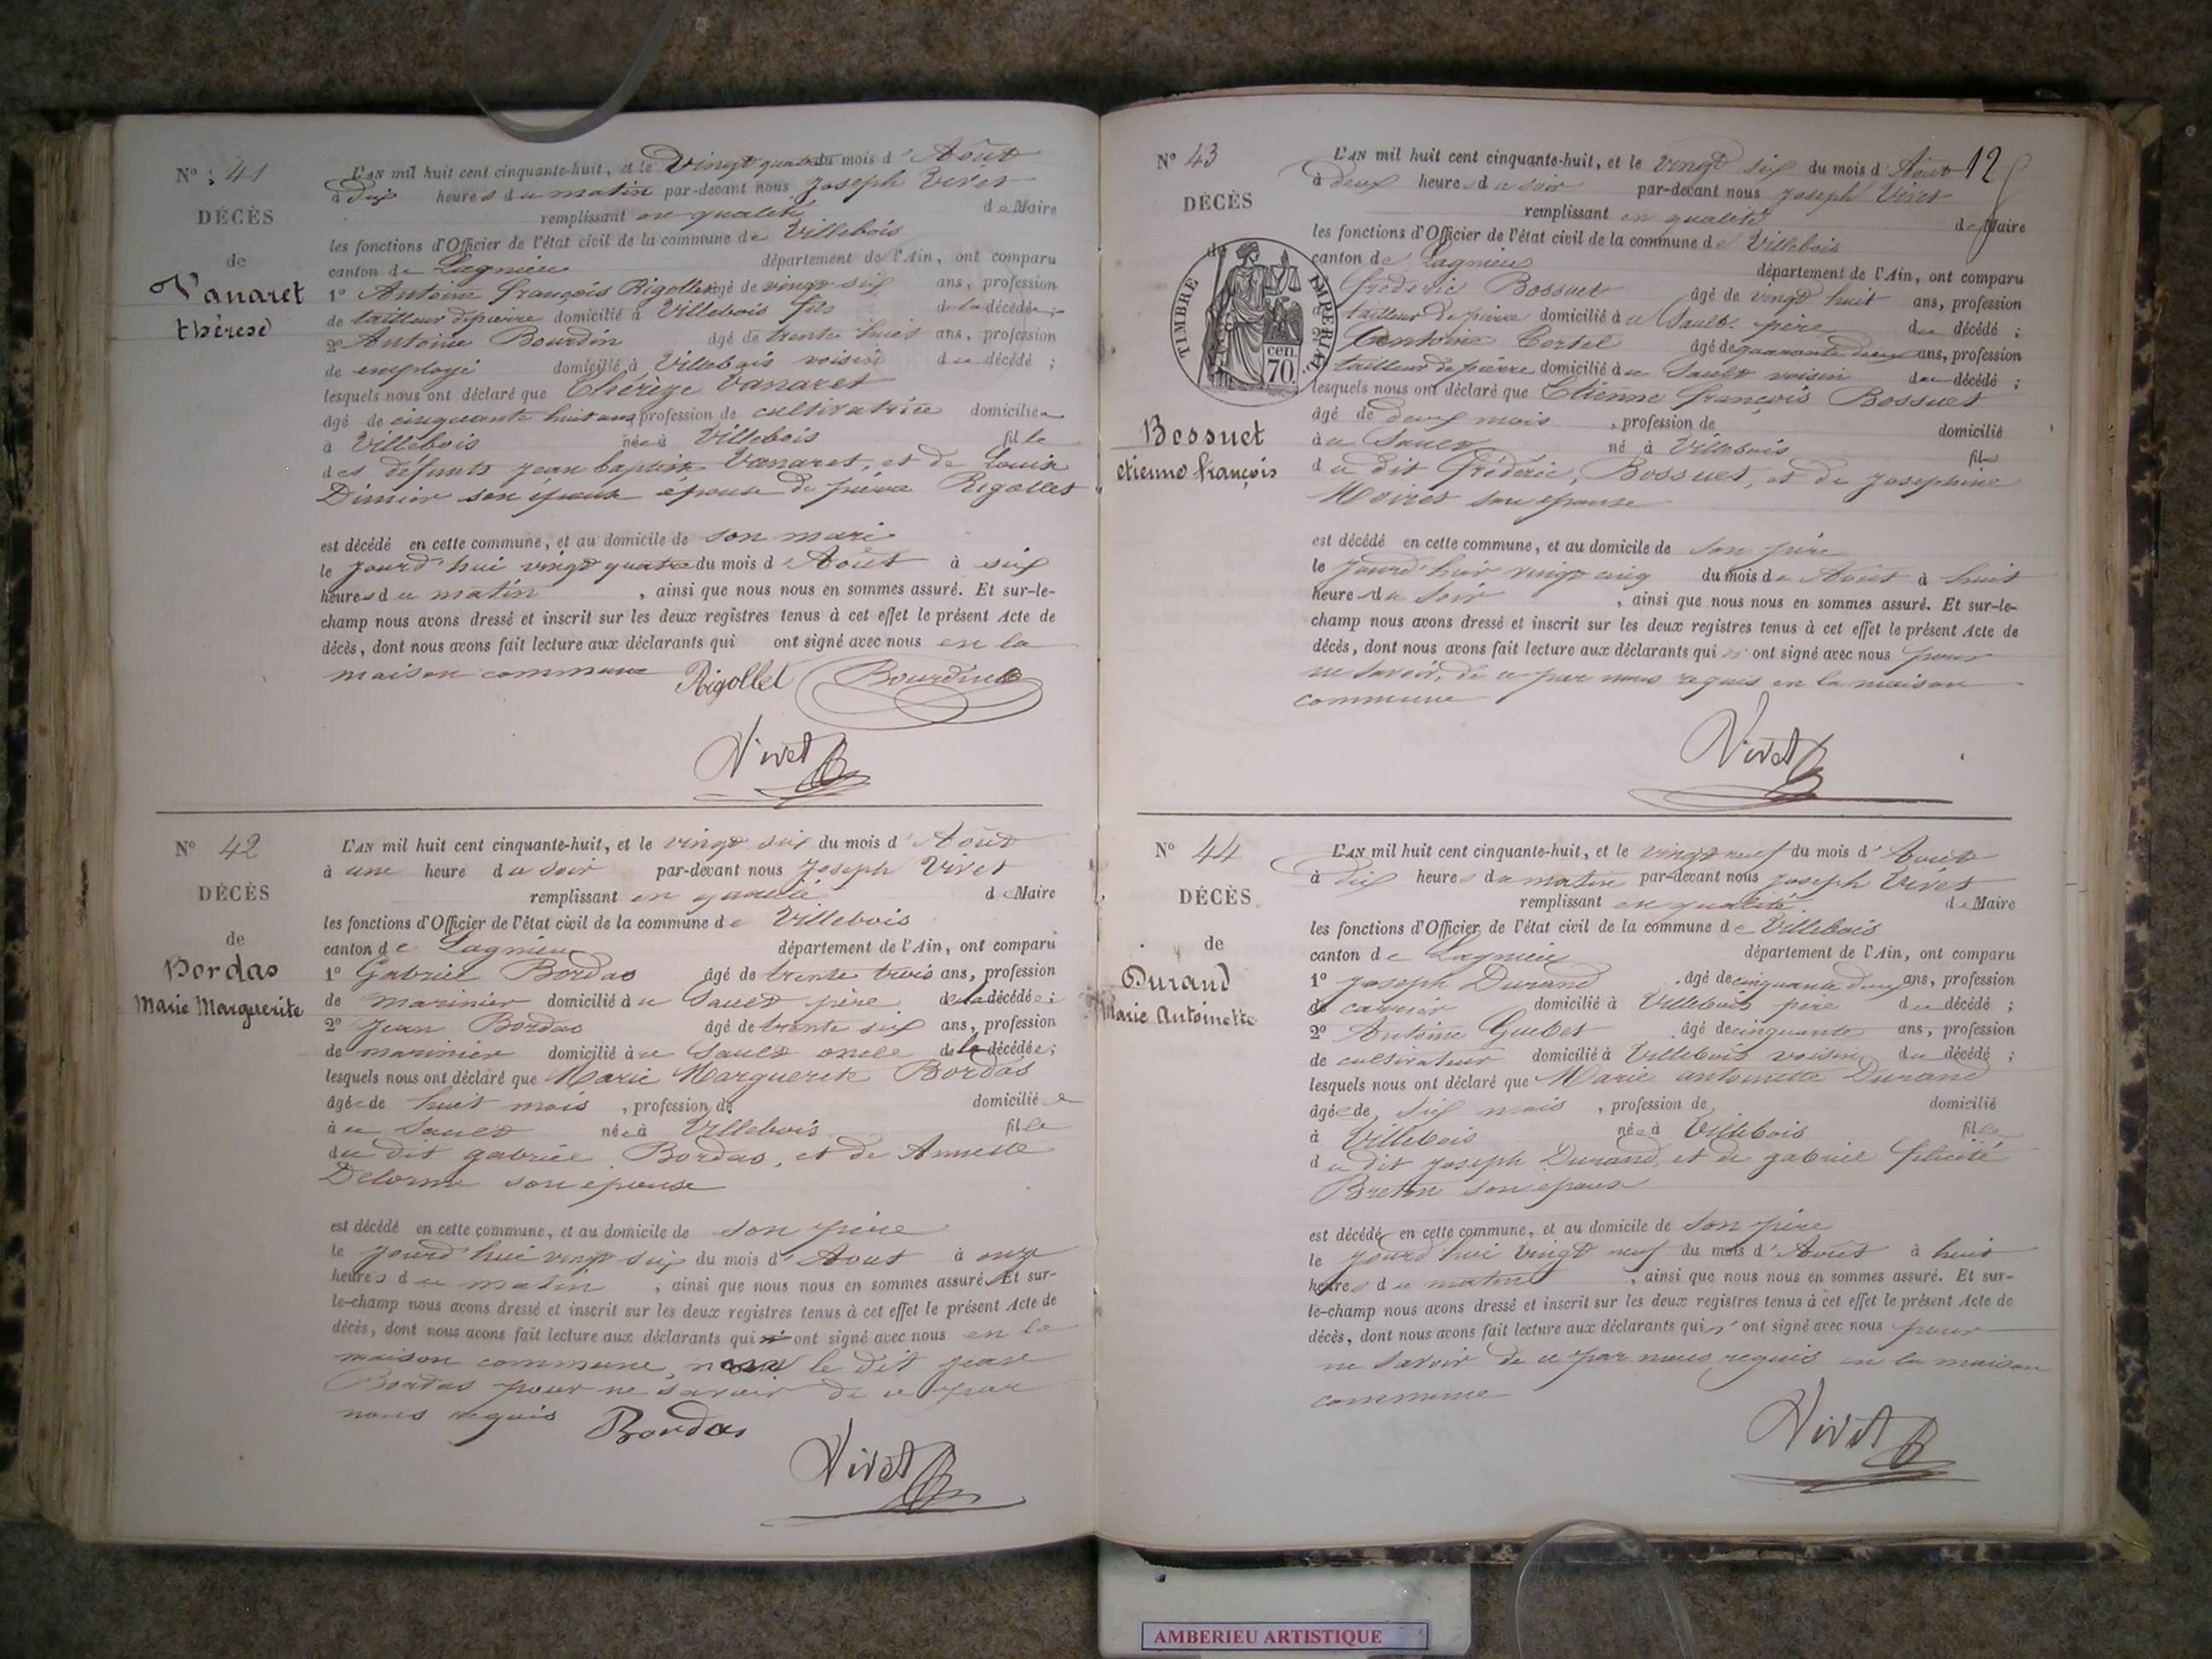 N° 41
DÉCÈS
de
Vanaret
thérese
L'AN mil huit cent cinquante-huit, et le vingt quatre du mois d'Août
à dix heures du matin par-devant nous Joseph Vivet
remplissant en qualité de Maire
les fonctions d'Officier de l'état civil de la commune de Villebois
canton de Lagnieu département de l'Ain, ont comparu
1° Antoine françois Rigollet âgé de vingt six ans, profession
de tailleur de pierre domicilié à Villebois fils de la décédée;
2° Antoine Bourdin âgé de trente huit ans, profession
de employé domicilié à Villebois voisin du décédé;
lesquels nous ont déclaré que Thérèze Vanaret
âgé de cinquante huit ans profession de cultivatrice domiciliée
à Villebois née à Villebois fille
des défunts Jean baptiste Vanaret, et de Louise
Dimier son épouse épouse de pierre Rigollet
est décédé en cette commune, et au domicile de son mari
le jourd'hui vingt quatre du mois d'Août à six
heures du matin, ainsi que nous nous en sommes assuré. Et sur-le-
champ nous avons dressé et inscrit sur les deux registres tenus à cet effet le présent Acte de
décès, dont nous avons fait lecture aux déclarants qui ont signé avec nous en la
maison commune Rigollet Bourdin
Vivet
N° 42
DÉCÈS
de
Bordas
Marie Marguerite
L'AN mil huit cent cinquante-huit, et le vingt six du mois d'Août
à une heure du soir par-devant nous Joseph Vivet
remplissant en qualité de Maire
les fonctions d'Officier de l'état civil de la commune de Villebois
canton de Lagnieu département de l'Ain, ont comparu
1° Gabriel Bordas âgé de trente trois ans, profession
de marinier domicilié à u Sault père de la décédée;
2° Jean Bordas âgé de trente six ans, profession
de marinier domicilié à u Sault oncle de la décédée;
lesquels nous ont déclaré que Marie Marguerite Bordas
âgée de huit mois, profession de domiciliée
à u Sault née à Villebois fille
du dit gabriel Bordas, et de Annette
Delorme son épouse
est décédé en cette commune, et au domicile de son père
le jourd'hui vingt six du mois d'Aout à onze
heures du matin, ainsi que nous nous en sommes assuré. Et sur-
le-champ nous avons dressé et inscrit sur les deux registres tenus à cet effet le présent Acte de
décès, dont nous avons fait lecture aux déclarants qui ont signé avec nous en la
maison commune, non le dit jean
Bordas pour ne savoir de ce par
nous requis Bordas
Vivet
N° 43
DÉCÈS
de
TIMBRE IMPÉRIAL
70 cen.
Bossuet
etienne françois
12
L'AN mil huit cent cinquante-huit, et le vingt six du mois d'Août
à deux heures du soir par-devant nous Joseph Vivet
remplissant en qualité de Maire
les fonctions d'Officier de l'état civil de la commune de Villebois
canton de Lagnieu département de l'Ain, ont comparu
fréderic Bossuet âgé de vingt huit ans, profession
tailleur de pierre domicilié à u Sault père du décédé;
2° Antoine âgé de quarante deux ans, profession
tailleur de pierre domicilié à u Sault voisin du décédé;
lesquels nous ont déclaré que Etienne françois Bossuet
âgé de deux mois, profession de domicilié
à u Sault né à Villebois fils
du dit frédéric, Bossuet, et de Josephine
Moiret son epouse
est décédé en cette commune, et au domicile de son père
le jourd'hier vingt cinq du mois de Aout à huit
heures du soir, ainsi que nous nous en sommes assuré. Et sur-le-
champ nous avons dressé et inscrit sur les deux registres tenus à cet effet le présent Acte de
décès, dont nous avons fait lecture aux déclarants qui n'ont signé avec nous pour
ne savoir, de ce par nous requis en la maison
commune
Vivet
N° 44
DÉCÈS
de
Durand
Marie Antoinette
L'AN mil huit cent cinquante-huit, et le vingt neuf du mois d'Août
à dix heures du matin par-devant nous Joseph Vivet
remplissant en qualité de Maire
les fonctions d'Officier de l'état civil de la commune de Villebois
canton de Lagnieu département de l'Ain, ont comparu
1° Joseph Durand âgé de cinquante deux ans, profession
de carrier domicilié à Villebois père du décédé;
2° Antoine Gubet âgé de cinquante ans, profession
de cultivateur domicilié à Villebois voisin du décédé;
lesquels nous ont déclaré que Marie antoinette Durand
âgée de six mois, profession de domicilié
à Villebois née à Villebois fille
du dit Joseph Durand, et de gabriel félicité
Breton son epouse
est décédé en cette commune, et au domicile de son père
le jourd'hui vingt neuf du mois d'Août à huit
heures du matin, ainsi que nous nous en sommes assuré. Et sur-
le-champ nous avons dressé et inscrit sur les deux registres tenus à cet effet le présent Acte de
décès, dont nous avons fait lecture aux déclarants qui n'ont signé avec nous pour
ne savoir de ce par nous requis en la maison
commune
Vivet
AMBERIEU ARTISTIQUE